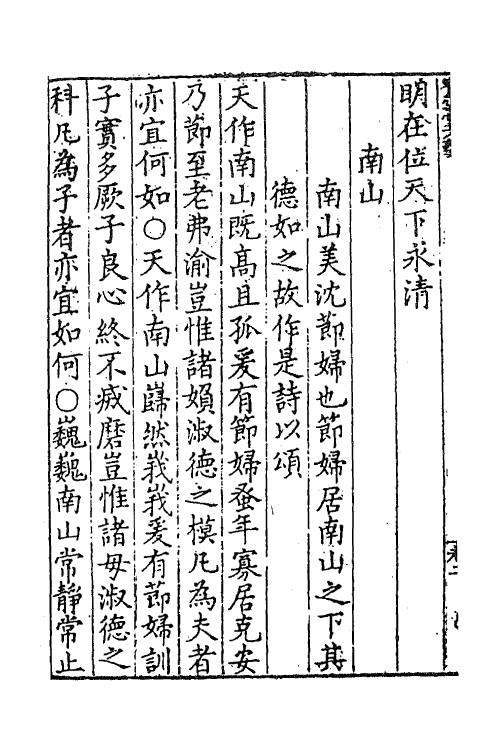 明在位天下永清
南山
南山美沈節婦也節婦居南山之下其
德如之故作是詩以頌
天作南山既髙且孤爰有節婦蚤年寡居克安
乃節至老弗渝豈惟諸嬪淑德之模凡為夫者
亦宜何如○天作南山巋然峩峩爰有節婦訓
子實多厥子良心終不戚磨豈惟諸母淑德之
科凡為子者亦宜如何○巍巍南山常靜常止